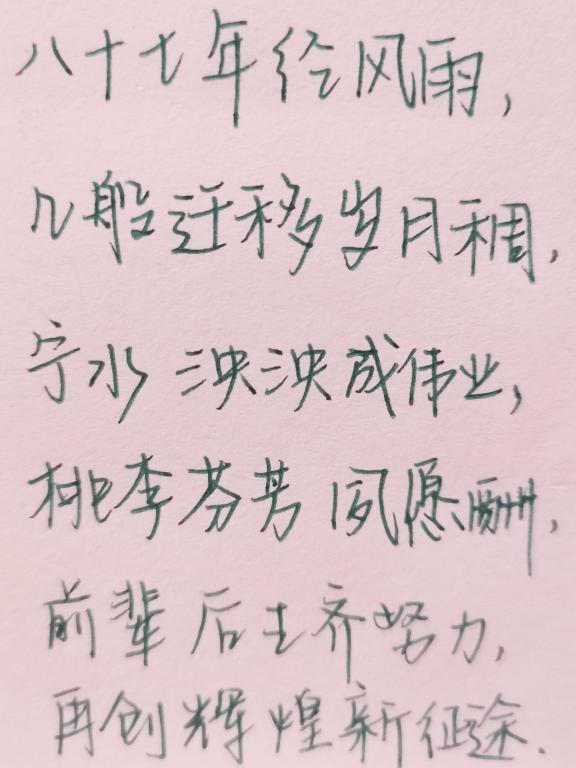 八十七年经风雨,
几般迁移岁月稠,
宁水泱泱成伟业,
桃李芬芳夙愿酬,
前辈后士齐努力,
再创辉煌新征途.